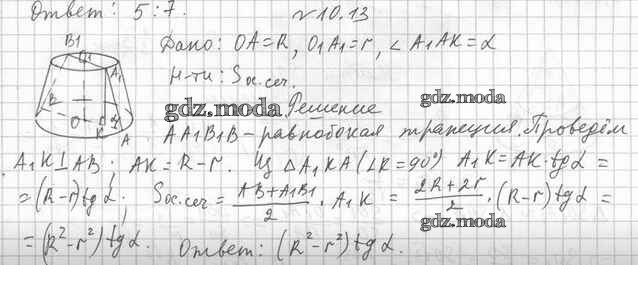 Ответ: 5:7. №10.13
B1 O1 A1 R O K α A
Дано: OA=R, O₁A₁=r, ∠A₁AK=α
Н-ти: Sос.сеч.
gdz.moda gdz.moda
Решение
AA₁B₁B – равнобокая трапеция. Проведём
A₁K⊥AB; AK=R-r. Из ΔA₁KA (∠K=90°) A₁K=AK·tgα=
=(R-r)tgα; Sос.сеч = (AB+A₁B₁)/2 · A₁K = (2R+2r)/2 · (R-r)tgα=
gdz.moda
=(R²-r²)tgα. Ответ: (R²-r²)tgα.